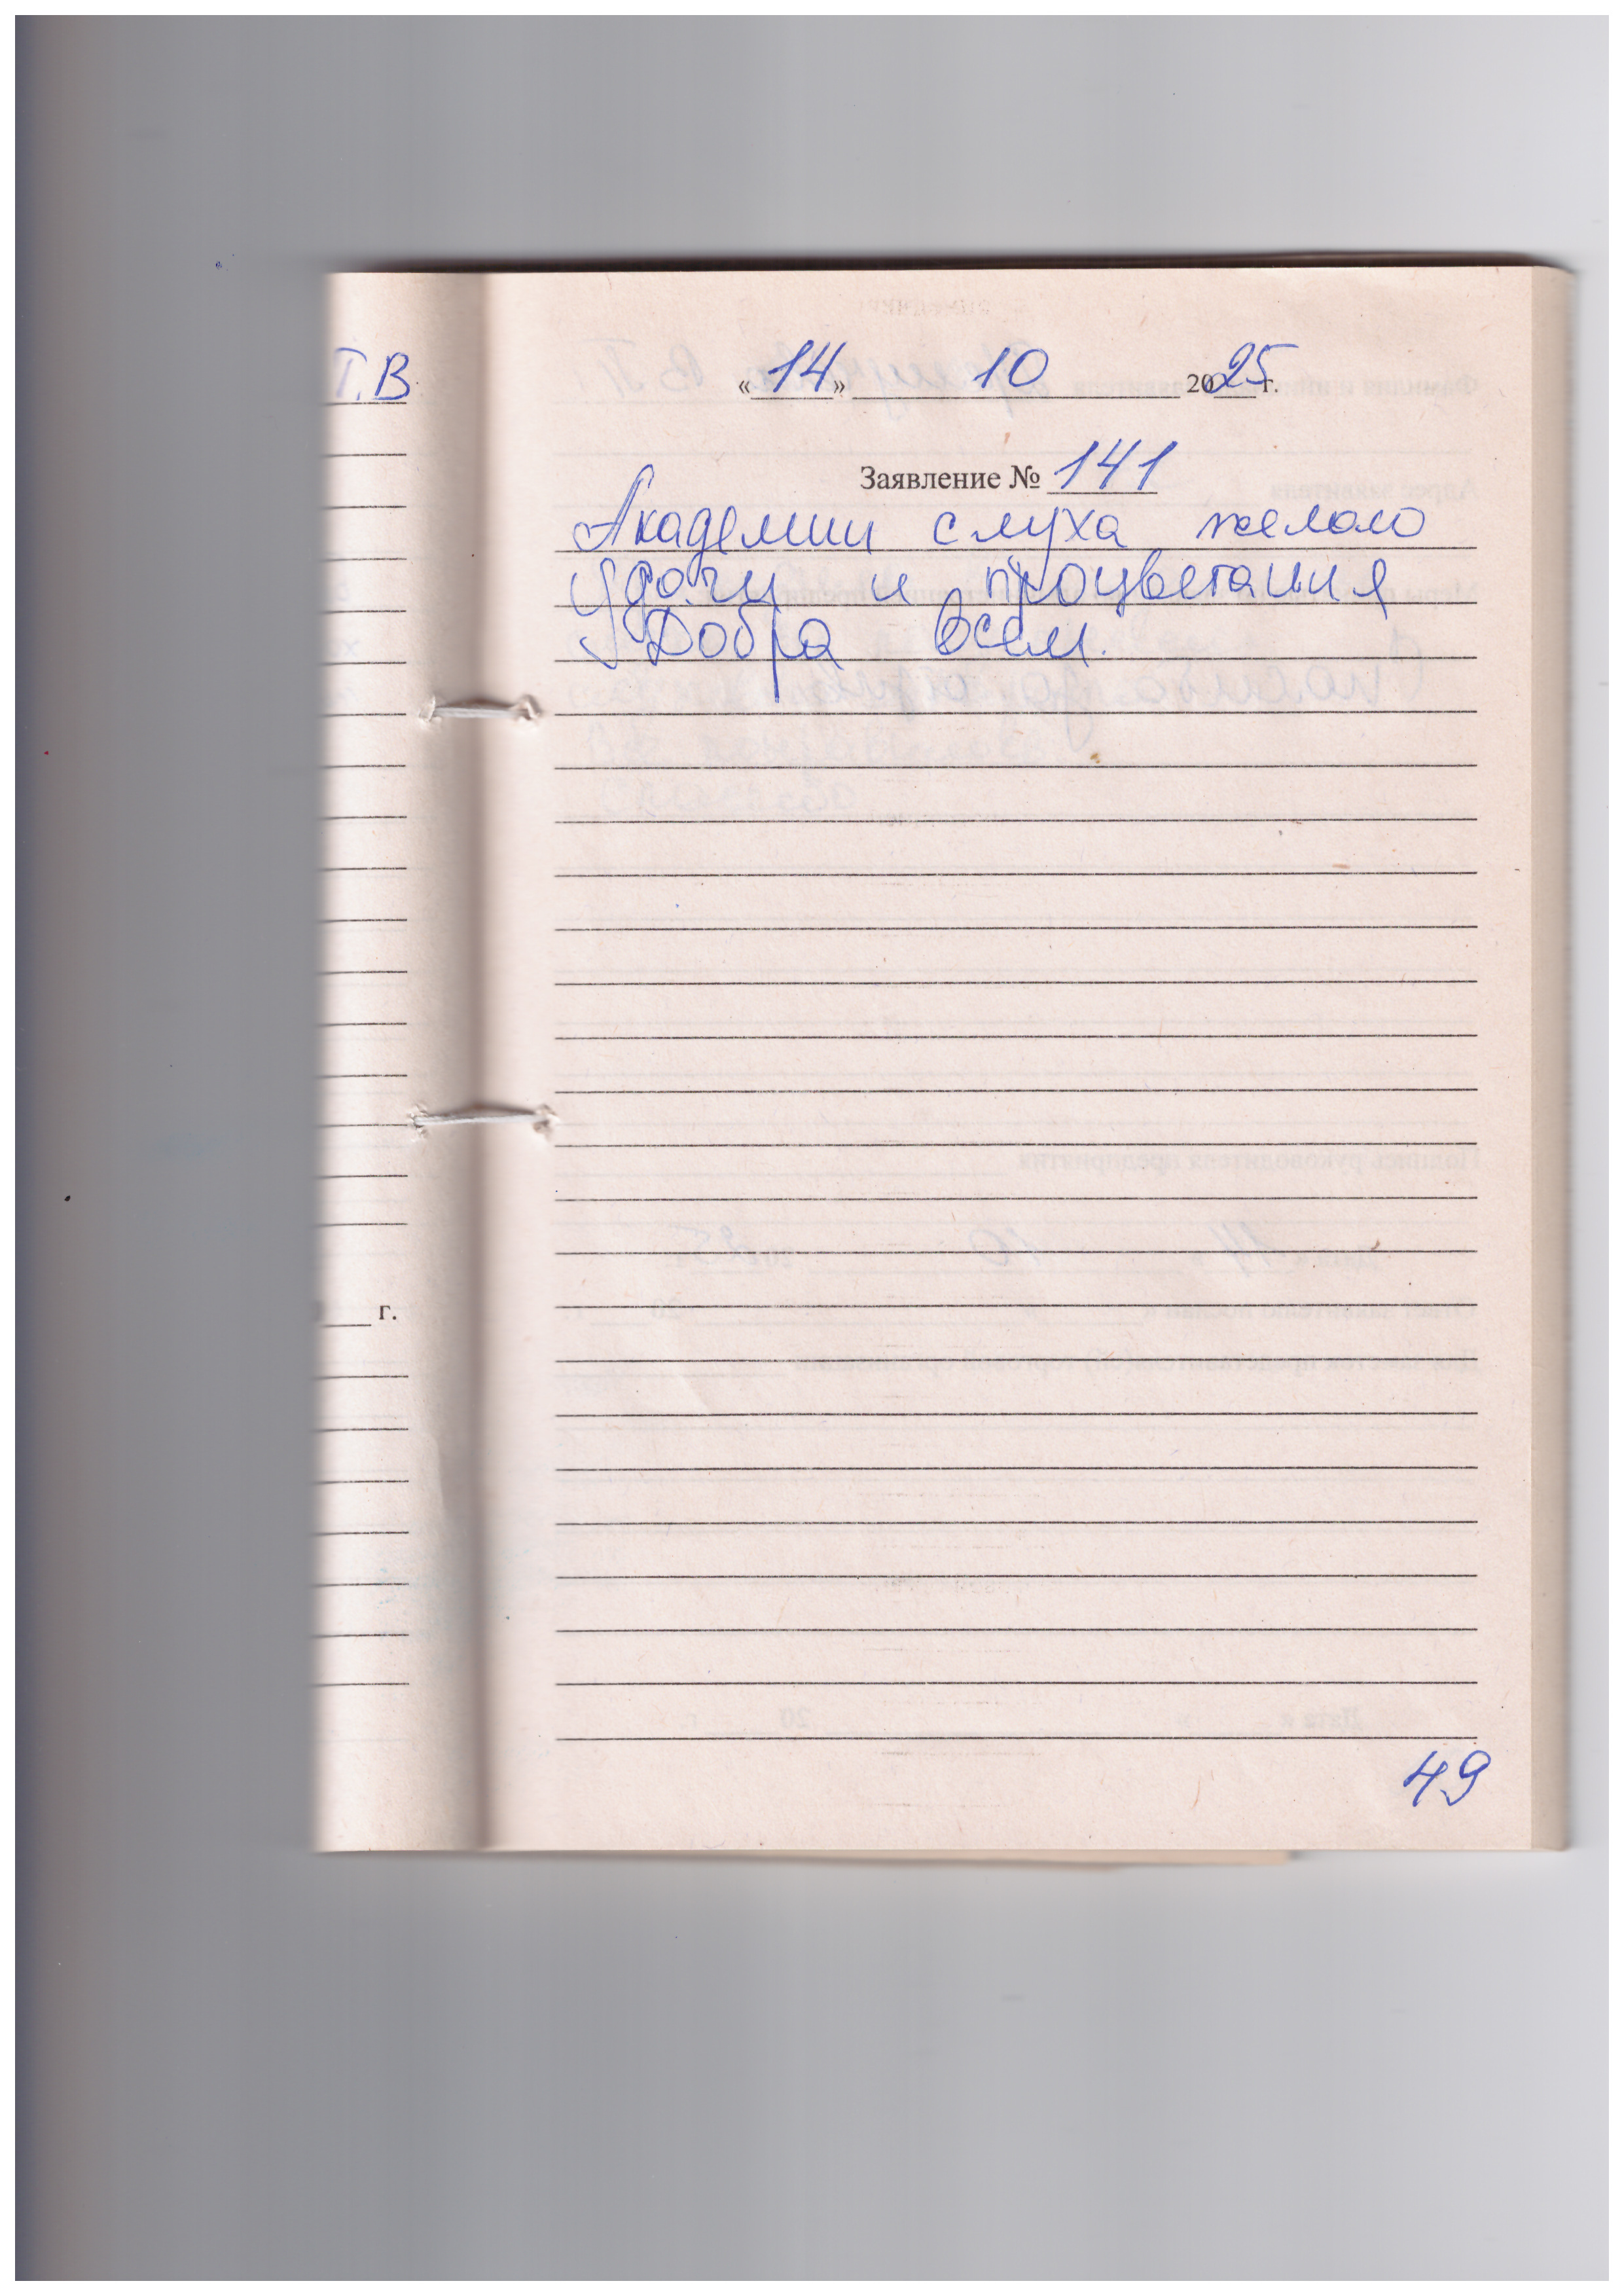 Т.В
«14» 10 2025 г.
Заявление № 141
Академии слуха желаю
удачи и процветания
Добра всем.
г.
49